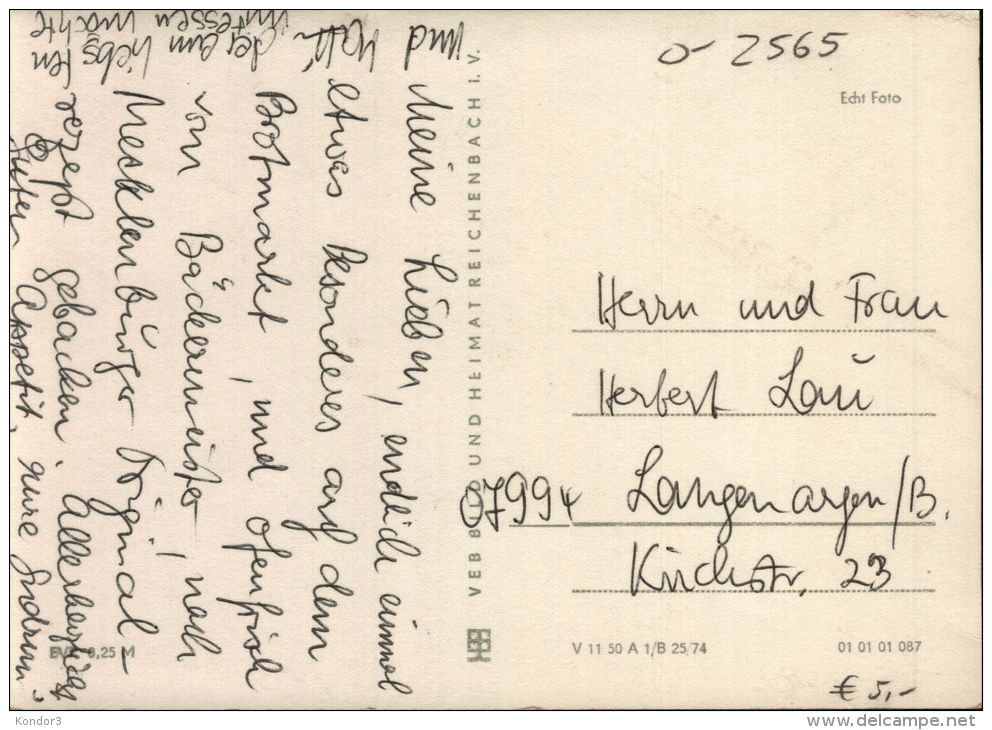 Meine Lieben, endlich einmal
etwas Besonderes auf dem
Brotmarkt, und ofenfrisch
vom Bäckermeister, nach
Mecklenbürger Original-
rezept gebacken. Allerherzlichst
Guten Appetit, eure Gudrun
und
der am
liebsten
möchte
VEB BILD UND HEIMAT REICHENBACH I. V.
o- 2565
Echt Foto
Herrn und Frau
Herbert Lau
07994 Langenargen/B.
Kirchstr. 23
EVP 0,25 M
V 11 50 A 1/B 25/74
01 01 01 087
€ 5,-
Kondor3
www.delcampe.net